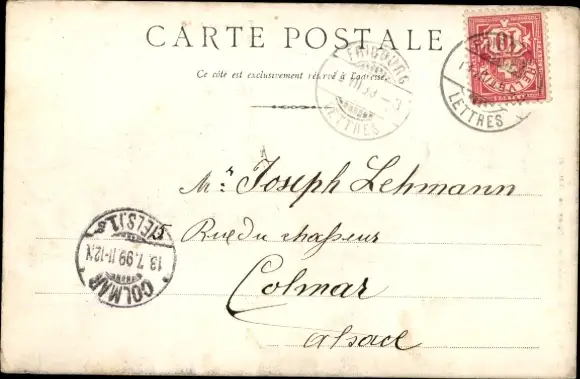 CARTE POSTALE
Ce côté est exclusivement réservé à l'adresse.
FRIBOURG
LETTRES
LETTRES
10
HELVETIA
Mr. Joseph Lehmann
Rue du chasseur
Colmar
Alsace
COLMAR
13.7.99.11-12V.
(ELS) 1.